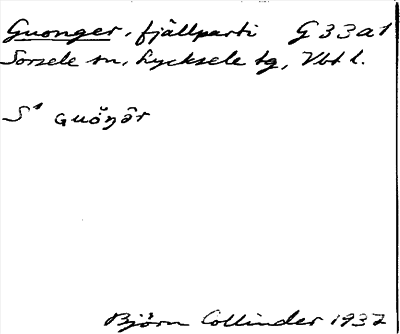 Guonger, fjällparti G 33a1
Sorsele sn, Lycksele tg, Vbt l.
S¹ ɢuŏŋâr
Björn Collinder 1937